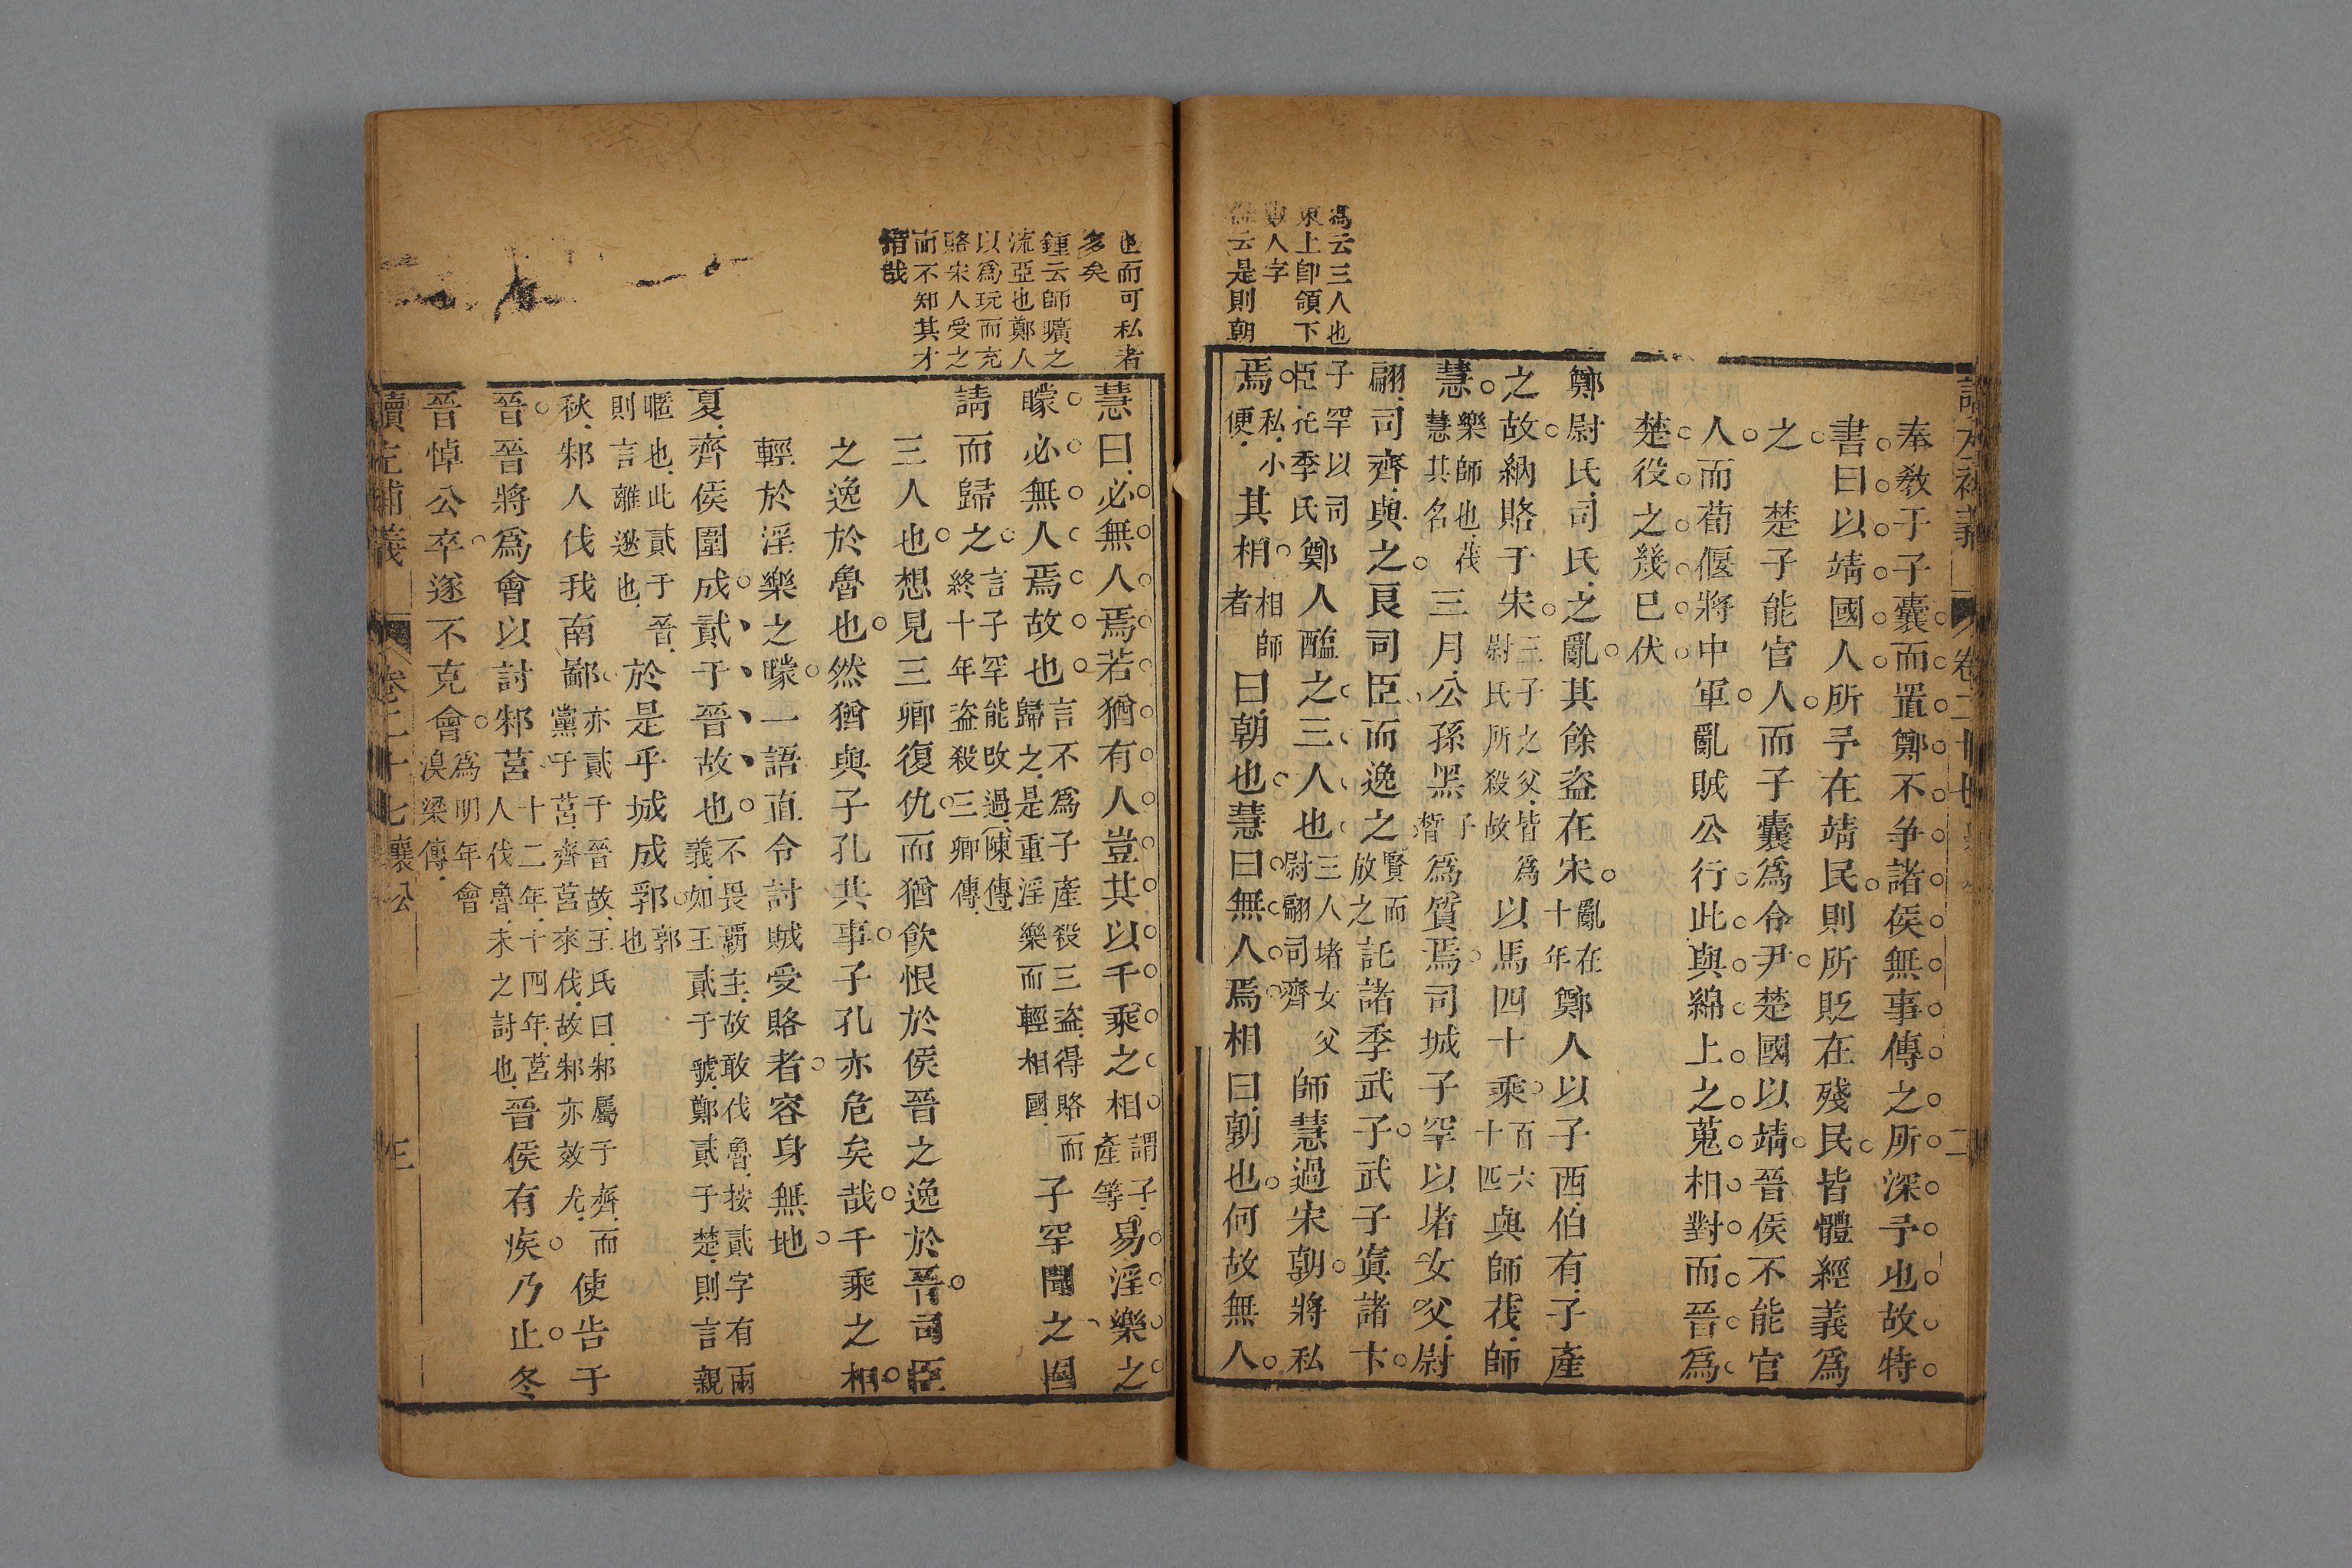 馮云三人也
東上即領下
數人字
云是則朝
讀左補義 卷二十七 襄公 二
奉教于子囊而置鄭不争諸侯無事傳之所深予也故特
書曰以靖國人所予在靖民則所貶在殘民皆體經義爲
之 楚子能官人而子囊爲令尹楚國以靖晉侯不能官
人而荀偃將中軍亂賊公行此與綿上之蒐相對而晉爲
楚役之幾已伏
鄭尉氏司氏之亂其餘盗在宋亂在十年鄭人以子西伯有子產
之故納賂于宋三子之父皆爲尉氏所殺故以馬四十乘百六十匹與師茷師
慧樂師也茷慧其名三月公孫黑子晳爲質焉司城子罕以堵女父尉
翩司齊與之良司臣而逸之賢而放之託諸季武子武子寘諸卞
子罕以司臣託季氏鄭人醢之三人也三人堵女父尉翩司齊師慧過宋朝將私
焉私小便其相相師者曰朝也慧曰無人焉相曰朝也何故無人
也而可私者
多矣
鍾云師曠之
流亞也鄭人
以爲玩而充
賂宋人受之
而不知其才
惜哉
慧曰必無人焉若猶有人豈其以千乘之相謂子產等易淫樂之
矇必無人焉故也言不爲子產殺三盗得賂而歸之是重淫樂而輕相國子罕聞之固
請而歸之言子罕能改過陳傳終十年盗殺三卿傳
三人也想見三卿復仇而猶飲恨於侯晉之逸於晉司臣
之逸於魯也然猶與子孔共事子孔亦危矣哉千乘之相
輕於淫樂之矇一語直令討賊受賂者容身無地
夏齊侯圍成貳于晉故也不畏霸主故敢伐魯按貳字有兩義如王貳于虢鄭貳于楚則言親
暱也此貳于晉則言離逖也於是乎城成郛郛郭也
秋邾人伐我南鄙亦貳于晉故王氏曰邾屬于齊而黨于莒齊莒來伐故邾亦效尤使告于
晉晉將爲會以討邾莒十二年十四年莒人伐魯未之討也晉侯有疾乃止冬
晉悼公卒遂不克會爲明年會溴梁傳
讀左補義 卷二十七 襄公 三